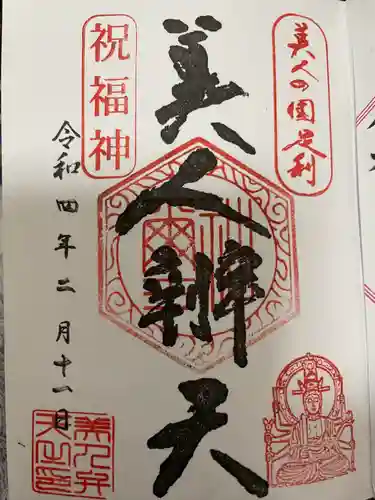 美人の国足利
美人辨天
祝福神
令和四年二月十一日
美人弁天之印